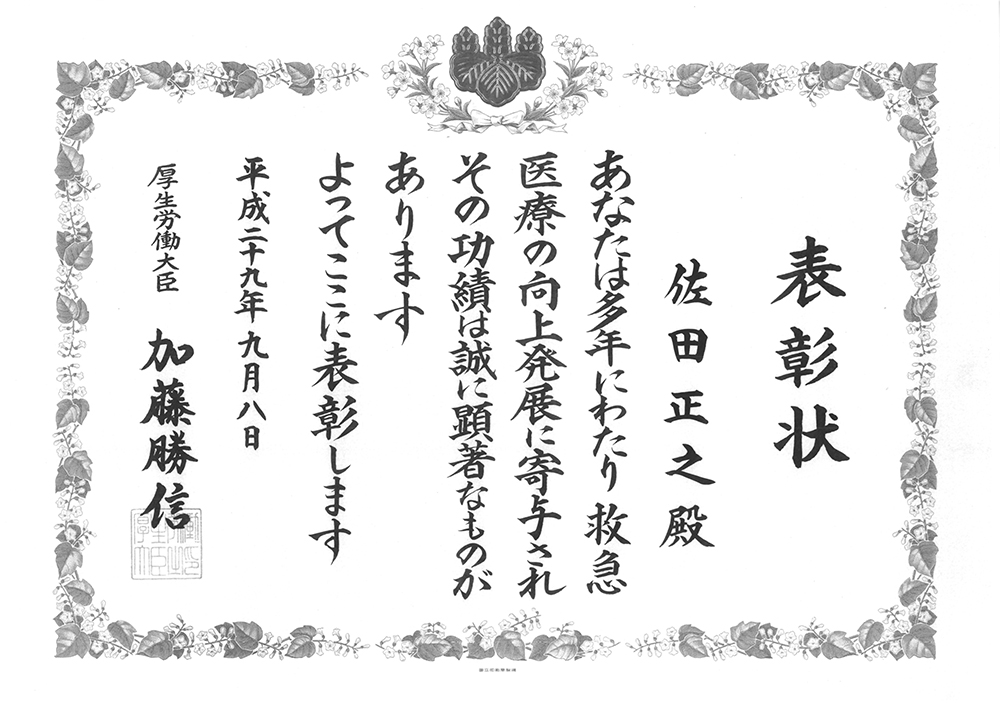 表彰状
佐田正之殿
あなたは多年にわたり救急
医療の向上発展に寄与され
その功績は誠に顕著なものが
あります
よってここに表彰します
平成二十九年九月八日
厚生労働大臣
加藤勝信